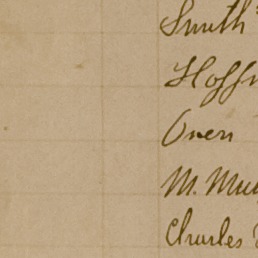 Smith
Hoff
Owen
M. Mu
Charles